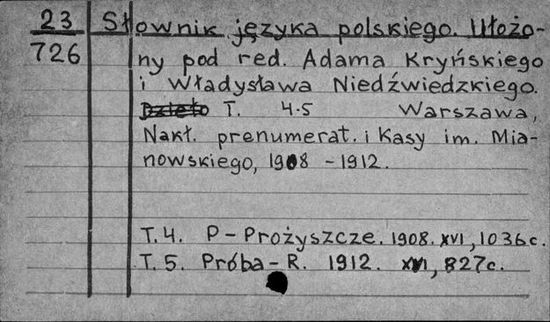 23 Słownik języka polskiego. Ułożo-
726 ny pod red. Adama Kryńskiego
i Władysława Niedźwiedzkiego.
T. 4-5 Warszawa,
Nakł. prenumerat. i Kasy im. Mia-
nowskiego, 1908 - 1912.
T. 4. P - Prożyszcze. 1908. XVI, 1036 c.
T. 5. Próba - R. 1912. 827 c.